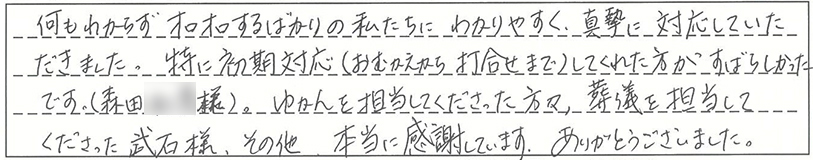 何もわからず オロオロするばかりの私たちに わかりやすく、真摯に 対応していた
だきました。 特に初期対応(おむかえから 打合せまで)してくれた方が すばらしかった
です。(森田 様)。 ゆかんを担当してくださった方々、葬儀を担当して
くださった 武石様、その他、本当に感謝しています。ありがとうございました。